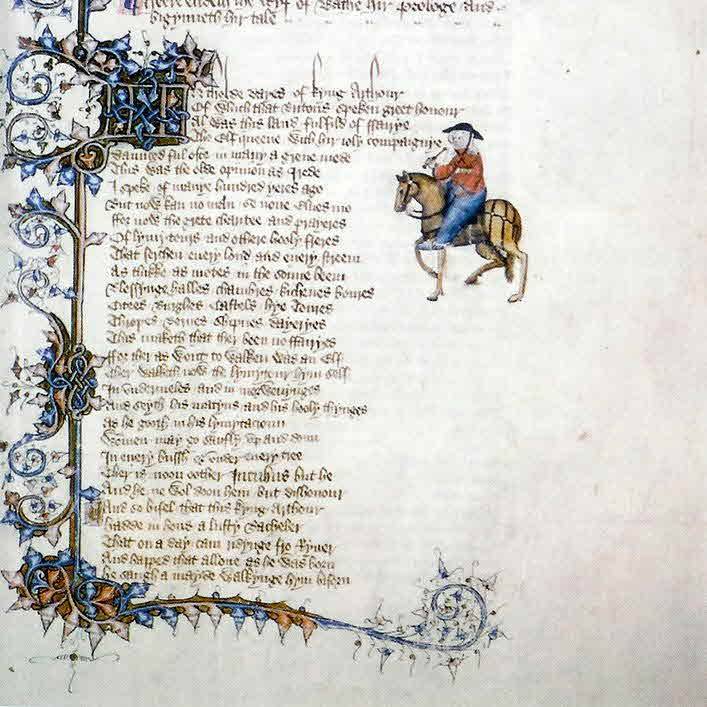 Heere endeth the Wyf of Bathe hir prologe And
bigynneth hir tale
In tholde dayes of kyng Arthour
Of which that Britons speken greet honour
Al was this land fulfild of ffairye
The Elf queene with hir ioly compaignye
Daunced ful ofte in many a grene mede
This was the olde opinion as I rede
I speke of manye hundred yeres ago
But now kan no man se none Elues mo
ffor now the grete charitee and prayeres
Of lymytours and othere hooly freres
That serchen euery lond and euery streem
As thikke as motes in the sonne beem
Blessynge halles chambres kichenes boures
Citees Burghes Castels hye Toures
Thropes Bernes Shipnes Dayeryes
This maketh that ther been no ffairyes
ffor ther as wont to walken was an Elf
Ther walketh now the lymytour hym self
In vndermeles and in morwenynges
And seyth his matyns and his hooly thynges
As he gooth in his lymytacioun
Wommen may go saufly vp and doun
In euery bussh or vnder euery tree
Ther is noon oother Incubus but he
And he ne wol doon hem but dishonour
And so bifel that this kyng Arthour
Hadde in hous a lusty Bacheler
That on a day cam ridynge fro Ryuer
And happed that allone as he was born
He saugh a mayde walkynge hym biforn